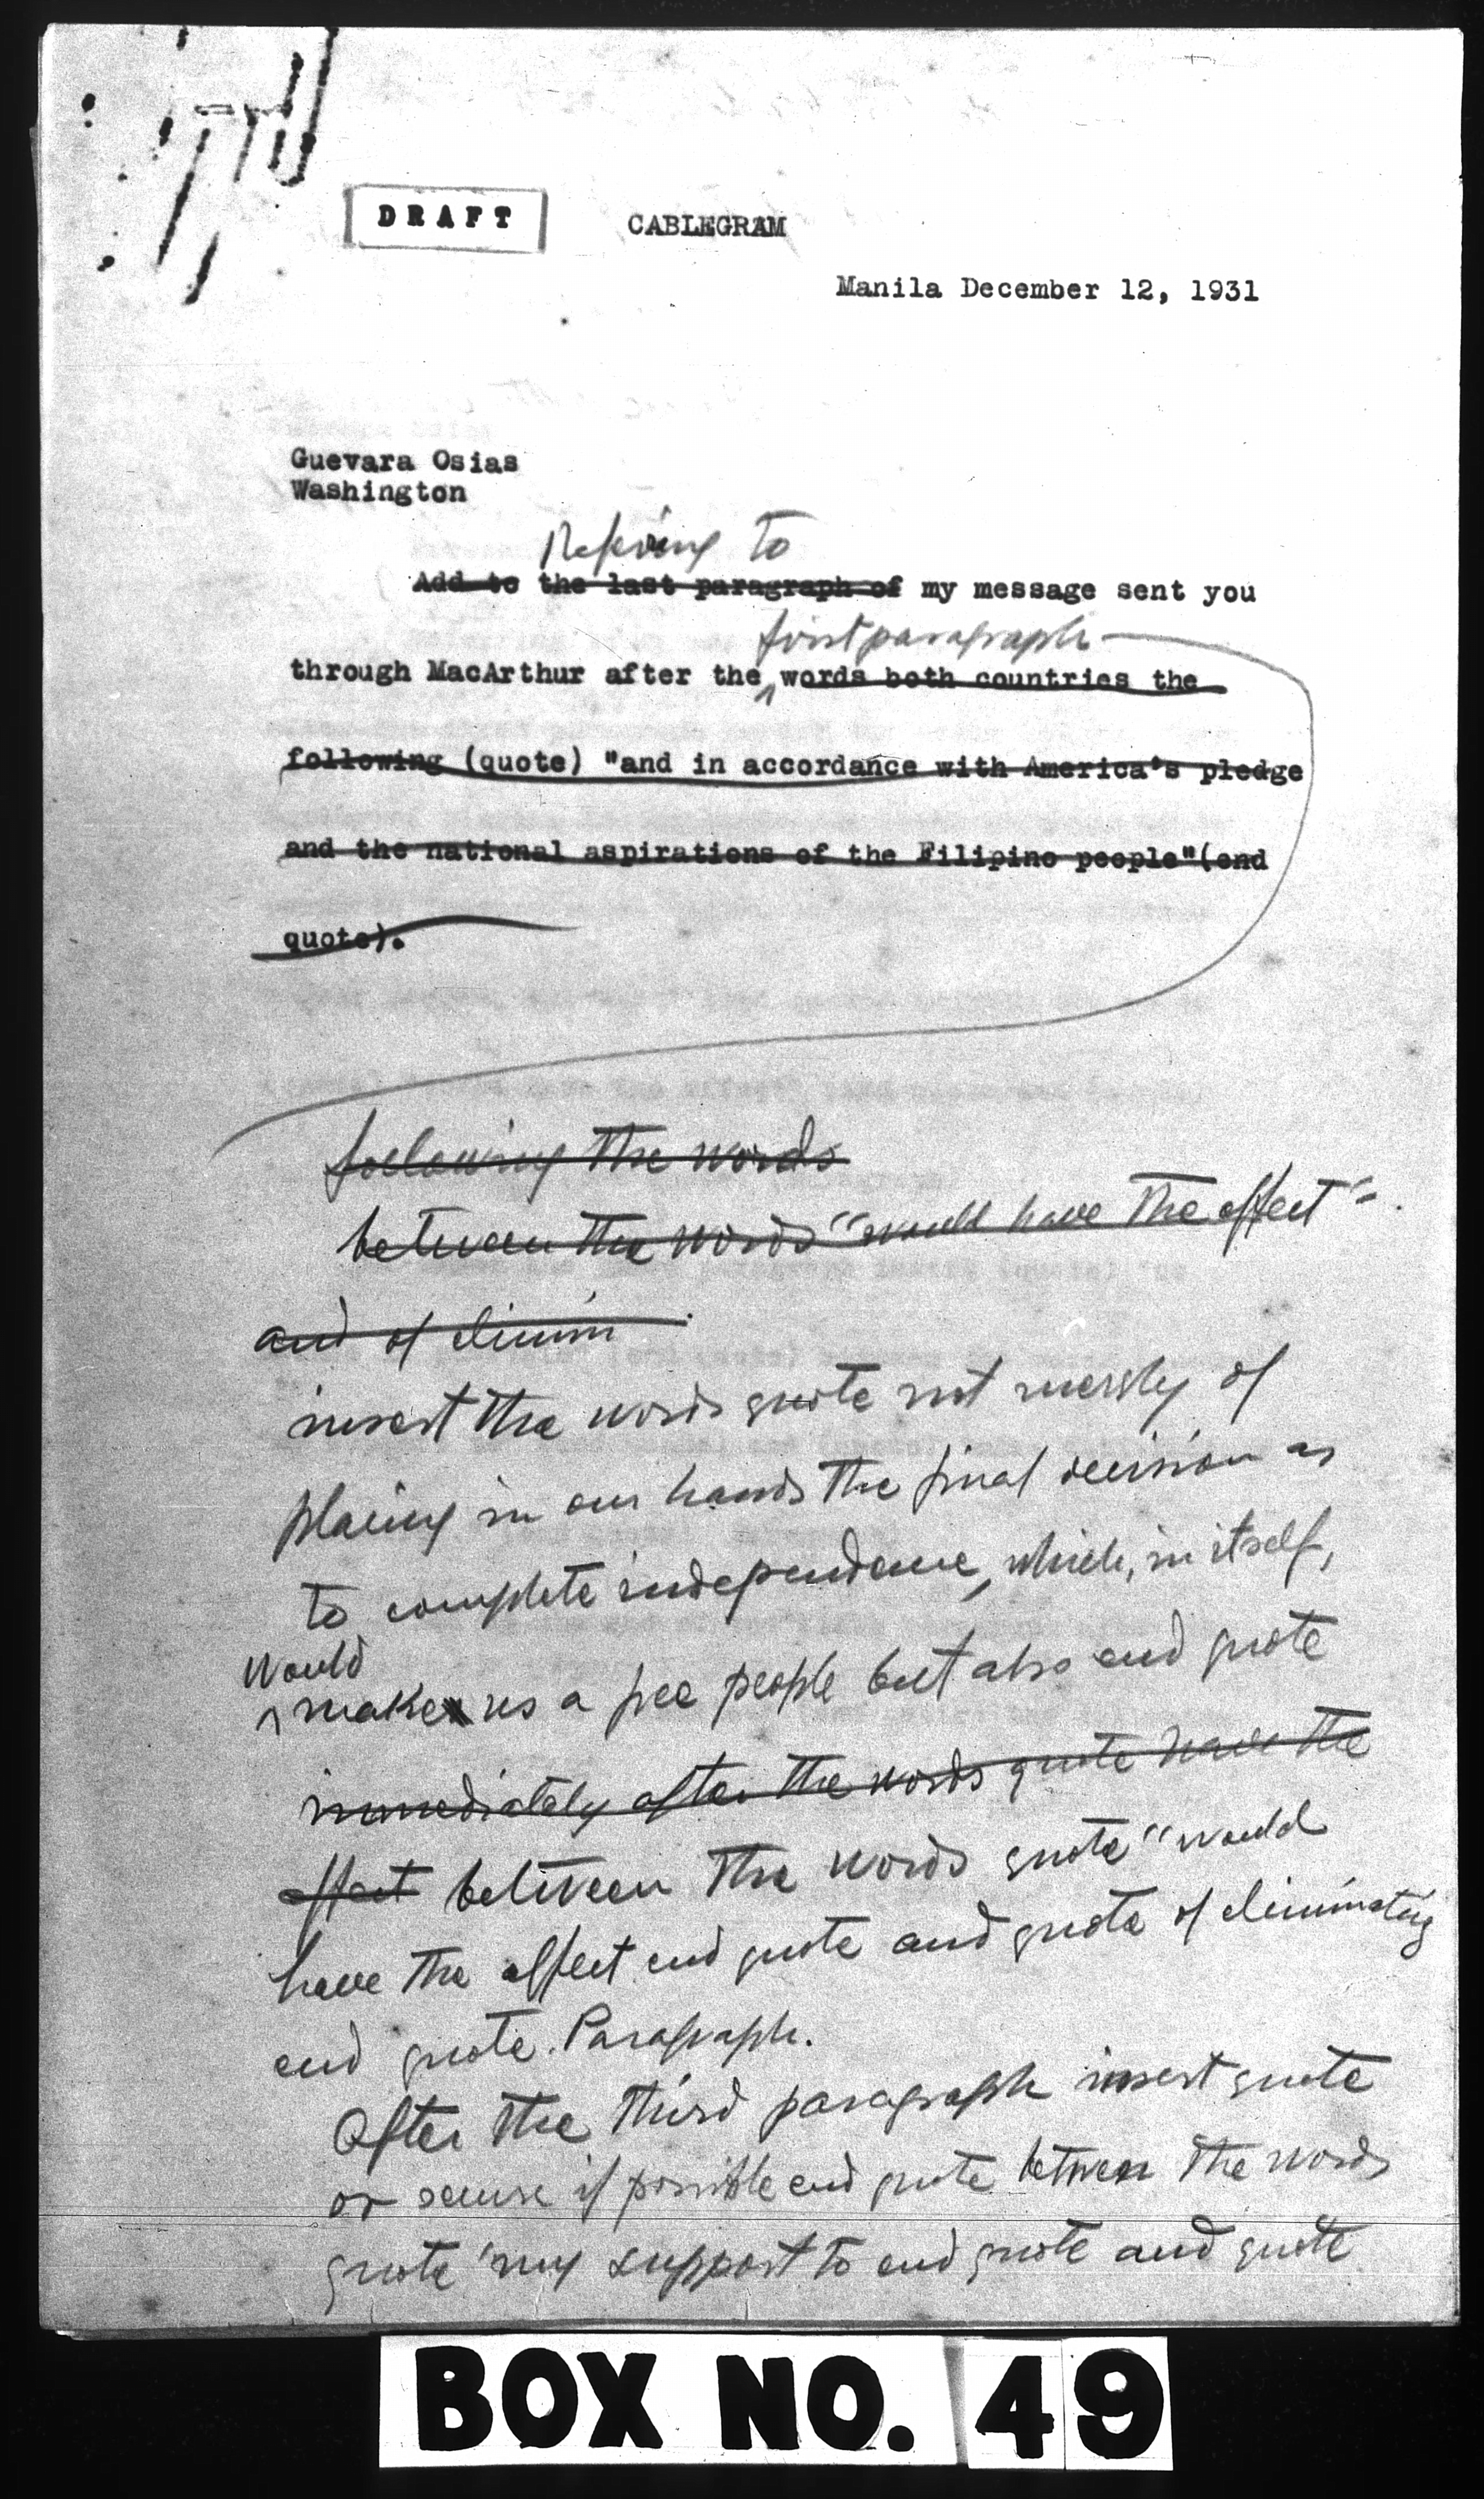 DRAFT
CABLEGRAM
Manila December 12, 1931
Guevara Osias
Washington
Refering to
Add to the last paragraph of my message sent you
first paragraph
through MacArthur after the words both countries the
following (quote) "and in accordance with America's pledge
and the national aspirations of the Filipino people"(end
quote).
following the words
between the words "would have the effect"
and of elimin
insert the words quote not merely of
placing in our hands the final decision as
to complete independence, which, in itself,
would
make us a free people but also end quote
immediately after the words quote have the
effect between the words quote "would
have the effect end quote and quote of eliminating
end quote. Paragraph.
After the third paragraph insert quote
or secure if possible end quote between the words
quote 'my support to end quote and quote
BOX NO. 49